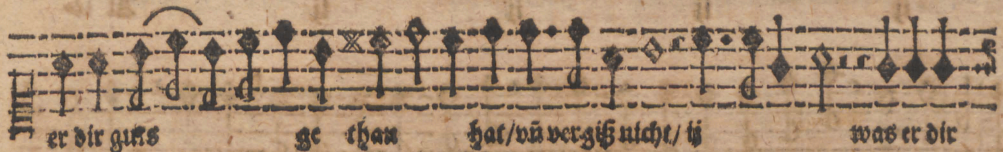 er dir guts ge than hat/ vñ vergiß nicht/ ij was er dir